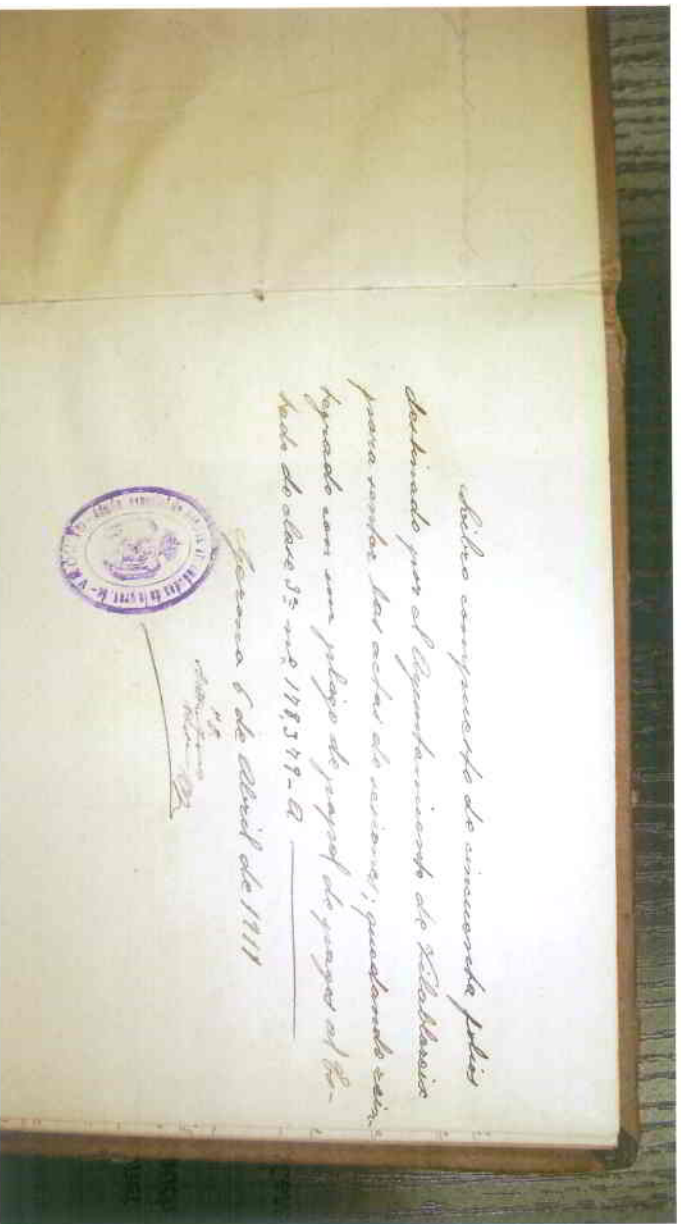 Libro compuesto de cincuenta folios
destinado por el Ayuntamiento de Vilablareix
para sentar las actas de sesiones; quedando rein-
tegrado con un pliego de papel de pagos al Es-
tado de clase 9ª nº 178,379-A
Gerona 6 de Abril de 1911